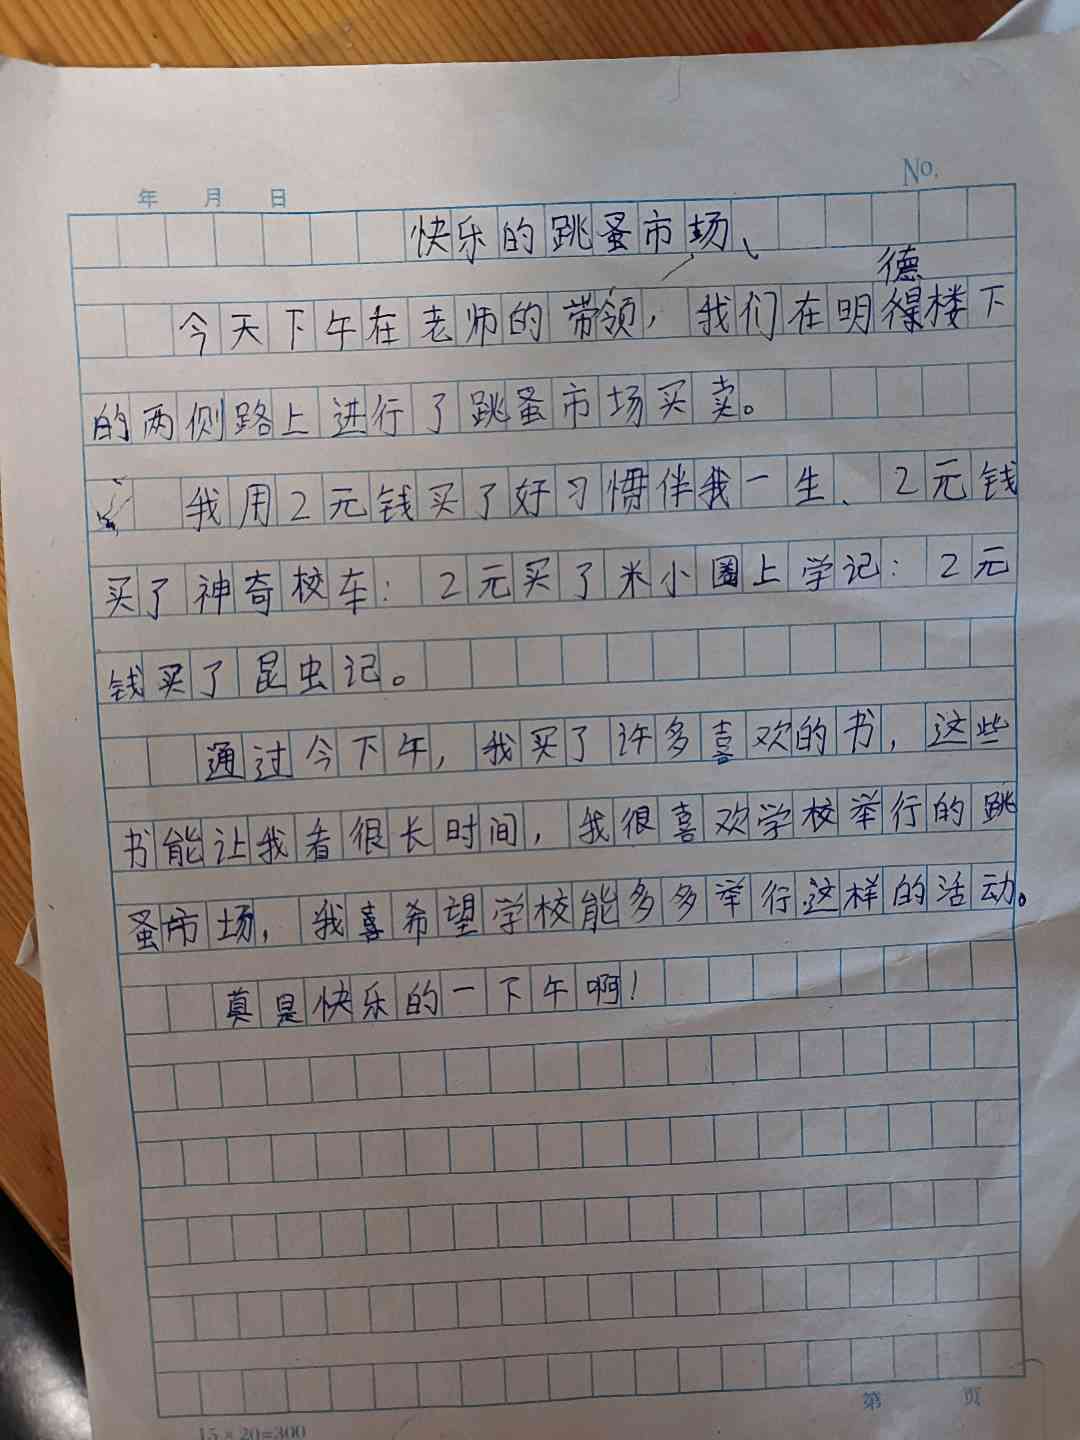 No.
年 月 日
快乐的跳蚤市场、
德
今天下午在老师的带领,我们在明得楼下
的两侧路上进行了跳蚤市场买卖。
我用2元钱买了好习惯伴我一生、2元钱
买了神奇校车:2元买了米小圈上学记:2元
钱买了昆虫记。
通过今下午,我买了许多喜欢的书,这些
书能让我看很长时间,我很喜欢学校举行的跳
蚤市场,我喜希望学校能多多举行这样的活动。
真是快乐的一下午啊!
第 页
15×20=300